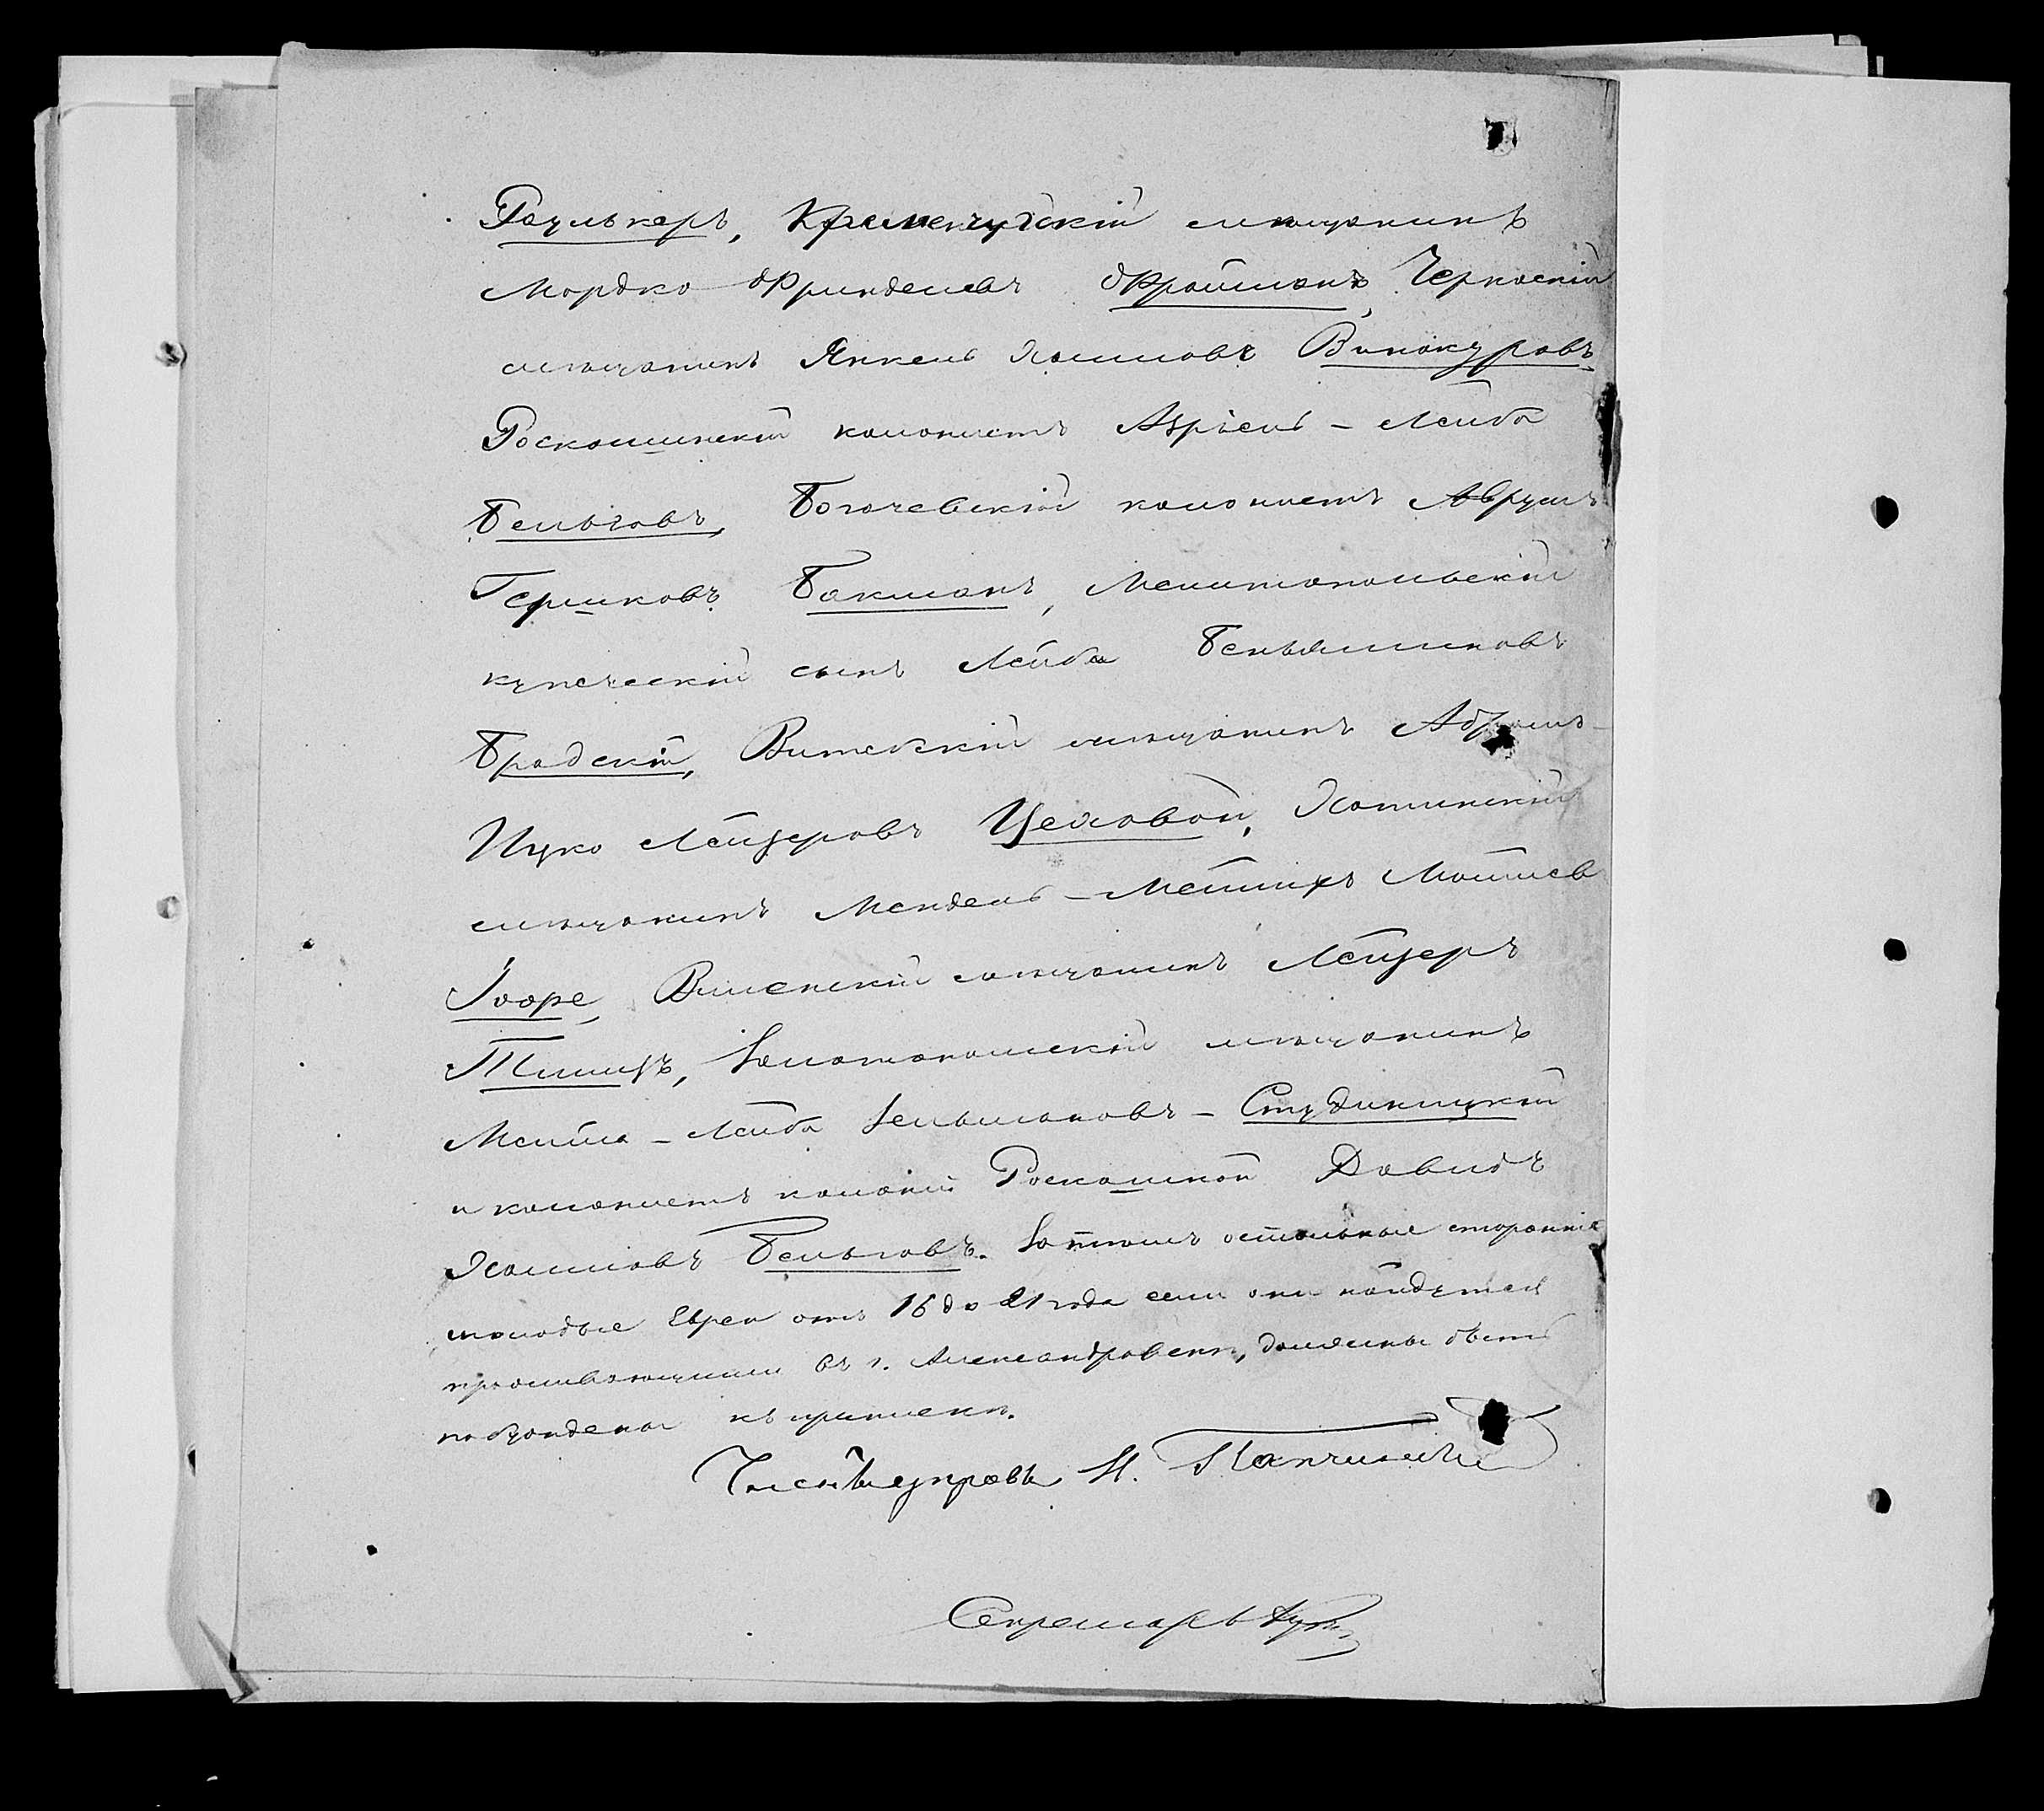 Раулькеръ, Кременчугскій мѣщанинъ
Мордко Фринделевъ Фрайманъ, Черкаскій
мѣщанинъ Янкель Хаимовъ Винокуровъ,
Роскошинскій колонистъ Авріель - Лейба
Бельговъ, Богачевскій колонистъ Аврумъ
Гершковъ Бакманъ, Мелитопольскій
купеческій сынъ Лейба Беньяминовъ
Бродскій, Витебскій мѣщанинъ Абрамъ-
Ицко Лейзеровъ Цеховой, Хотинскій
мѣщанинъ Мендель - Мейлихъ Мотьев
Гооре, Виленскій мѣщанинъ Лейзеръ
Типицъ, Золотоношскій мѣщанинъ
Меила - Лейба Зельмановъ - Студиницкій
и колонистъ колоніи Роскошной Давидъ
Хаимовъ Бельговъ. Затѣмъ остальные сторонніе
молодые Евреи отъ 16 до 21 года если они найдутся
проживающими въ г. Александровскѣ, должны быть
побуждены къ припискѣ.
Членъ управы И.
Секретарь